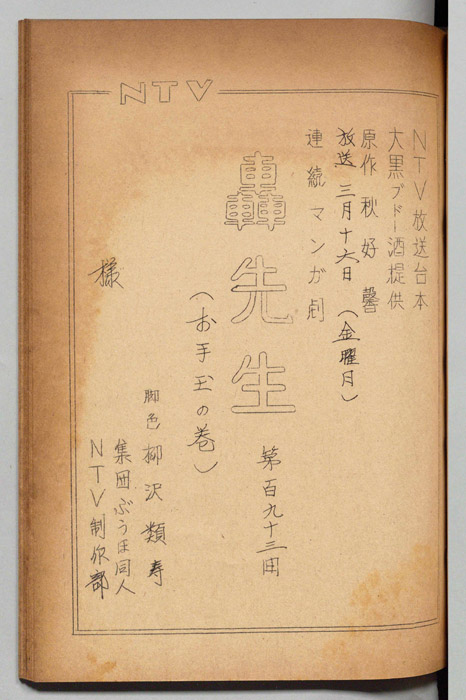 NTV
NTV放送台本
大黒ブドー酒提供
原作 秋好馨
放送 三月十六日(金曜日)
連続マンガ劇
轟先生
(お手玉の巻)
第百九十三回
脚色 柳沢類寿
集団ぶうほ同人
NTV制作部
様